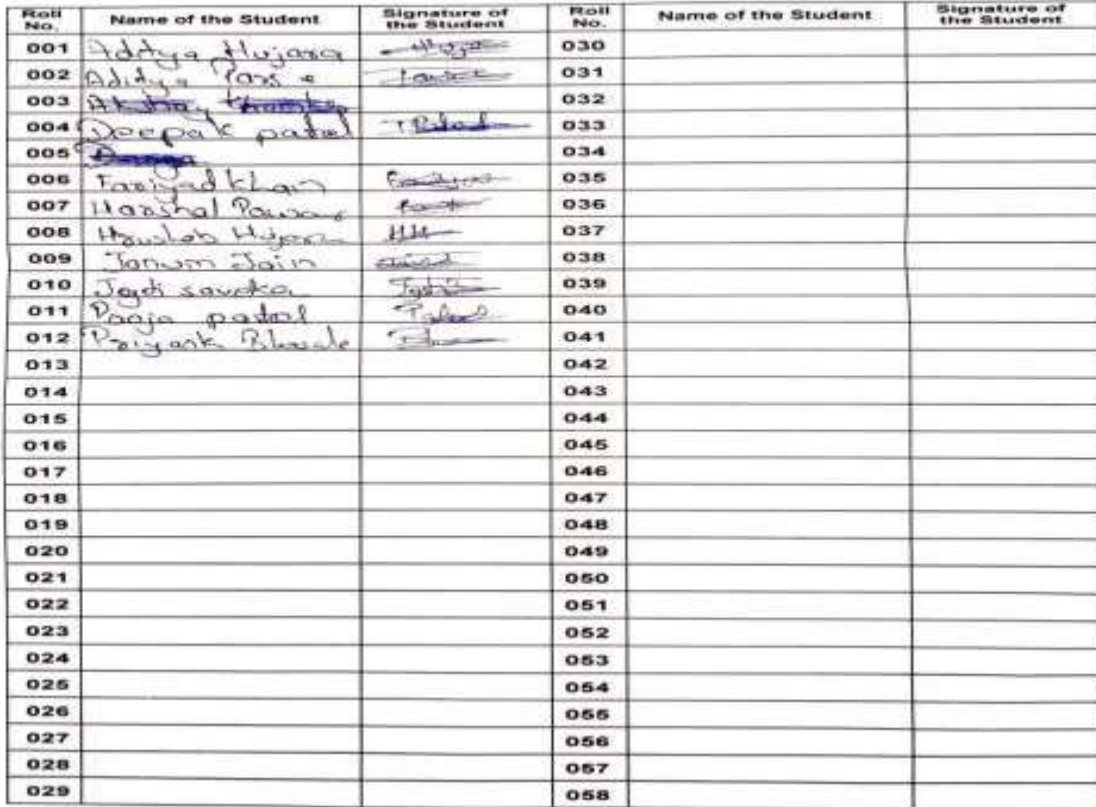 Roll No. Name of the Student Signature of the Student Roll No. Name of the Student Signature of the Student
001 Aditya Hujara 030
002 Aditya 031
003 032
004 Deepak patel Patel 033
005 034
006 Fariyad khan 035
007 Harshal 036
008 HH 037
009 Jain 038
010 039
011 patel Patel 040
012 Priyank 041
013 042
014 043
015 044
016 045
017 046
018 047
019 048
020 049
021 050
022 051
023 052
024 053
025 054
026 055
027 056
028 057
029 058